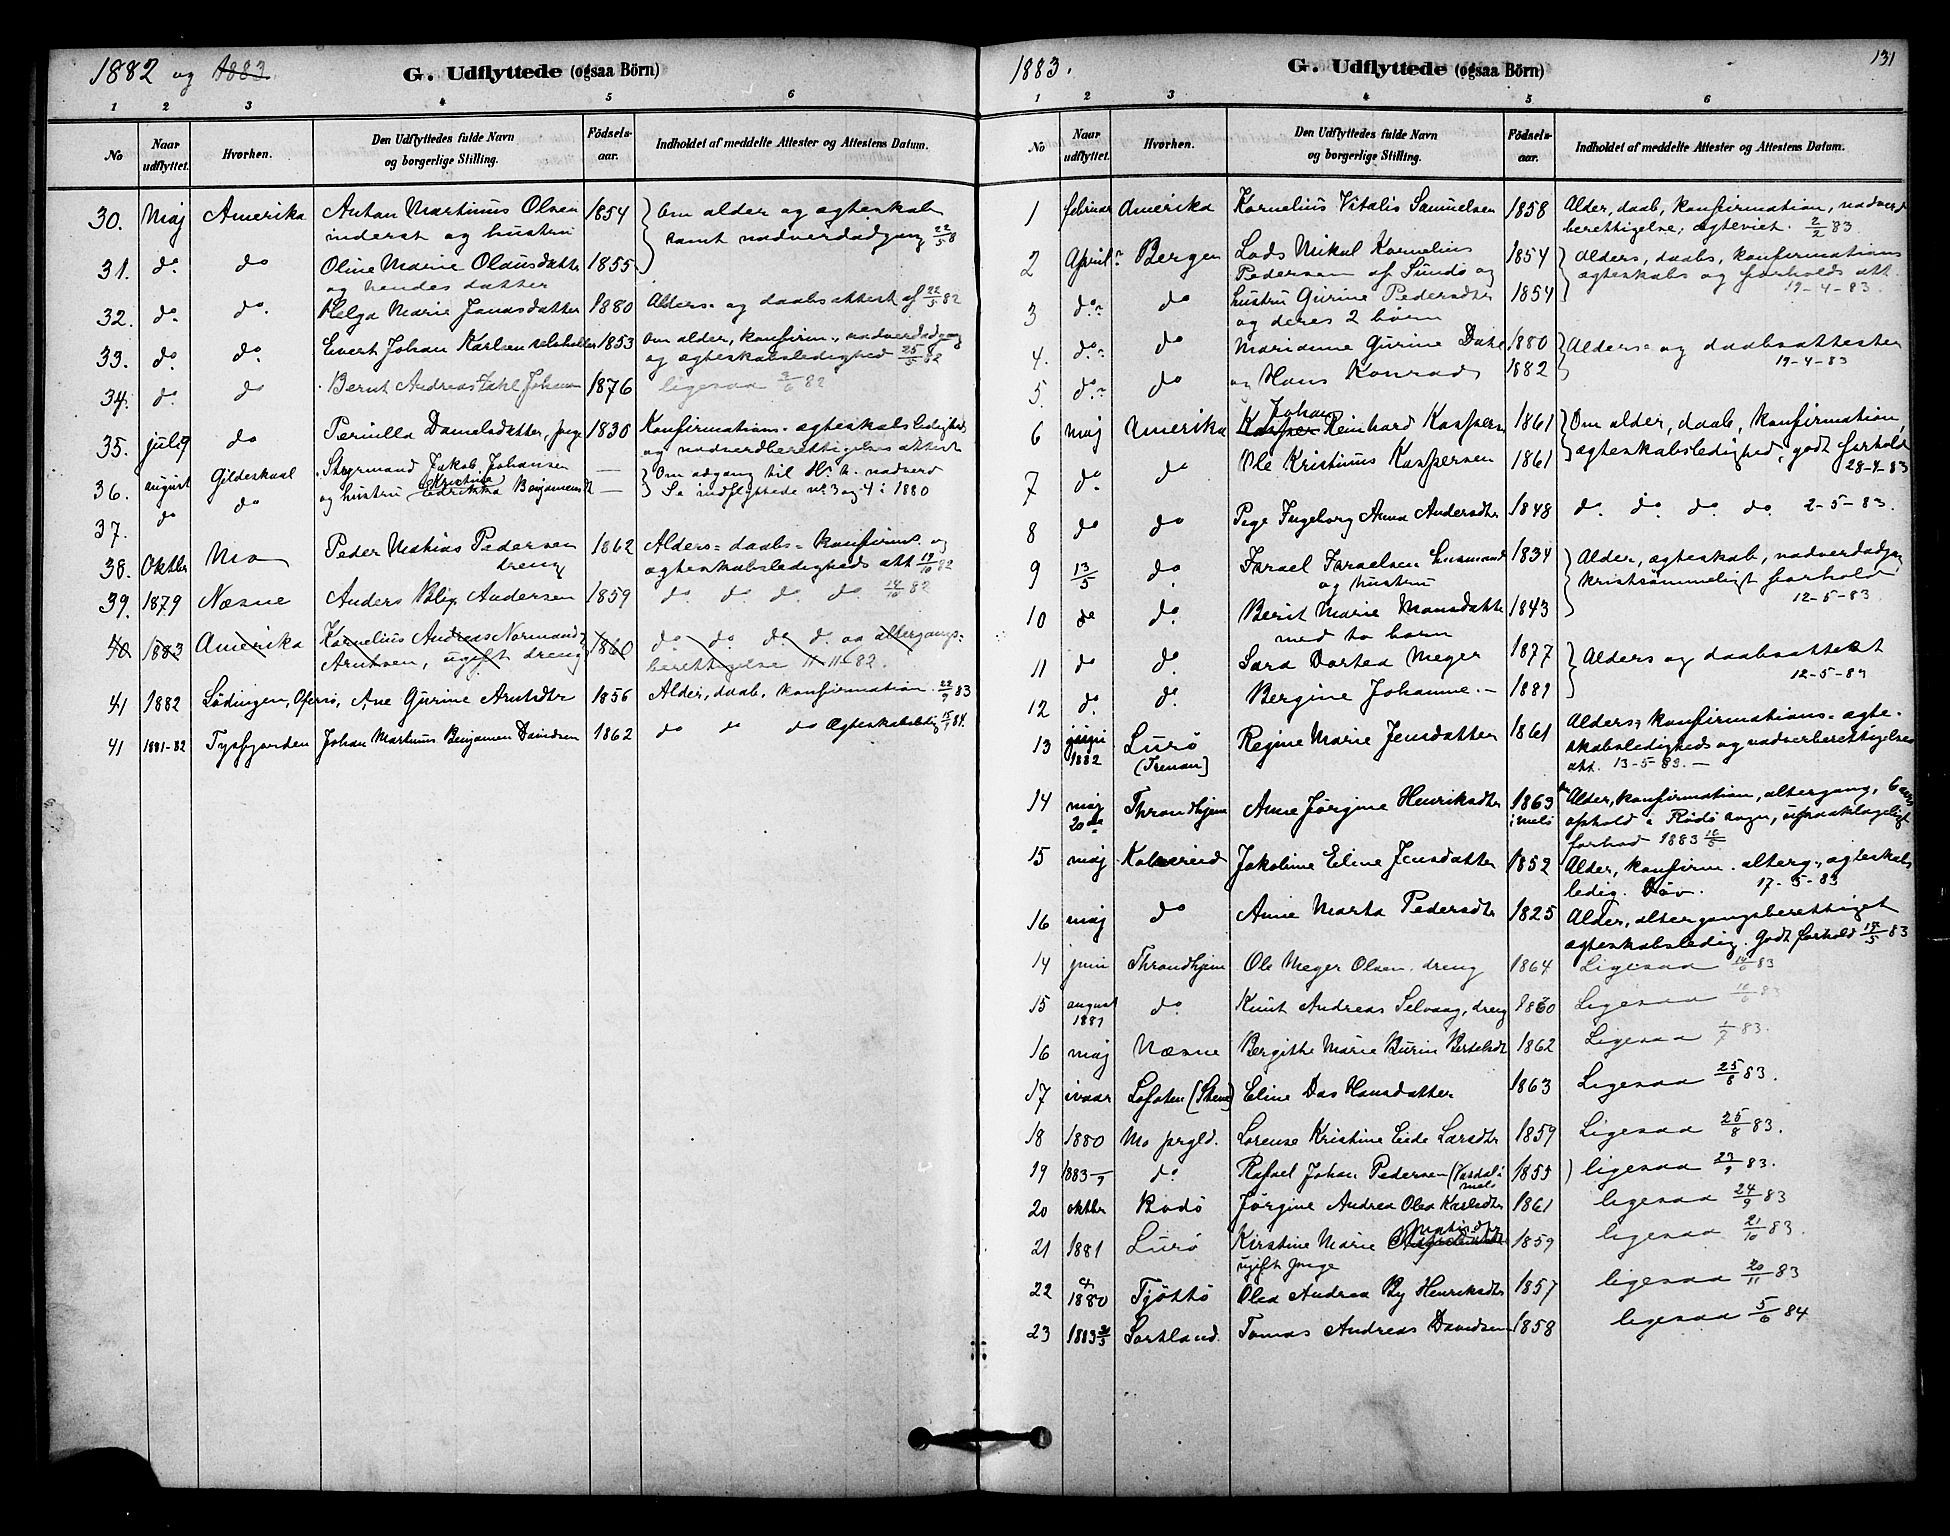 1882 og 1883.
G. Udflyttede (ogsaa Börn)
1 2 3 4 5 6
No
Naar udflyttet.
Hvorhen.
Den Udflyttedes fulde Navn og borgerlige Stilling.
Födsels-aar.
Indholdet af meddelte Attester og Attestens Datum.
30. Maj Amerika Anton Martinus Olsen 1854 Om alder og ægteskab
inderst og hustru samt nadverdadgang 22/5 8
31. do. do Oline Marie Olausdatter 1855
og hendes datter
32. do. do. Helga Marie Jonasdatter 1880 Alders- og daabsattest af 22/5 82
33. do. do. Evert Johan Karlsen 1853 om alder, konfirm., nadverdadgang
og ægteskabsledighed 25/5 82
34. do. do Bernt Andreas Johan 1876 ligesaa 2/6 82
35. july do Pernilla Danielsdatter, pige 1836 Konfirmations- ægteskabsledigheds
og nadverdberettigelses attest
36. august Gildeskaal Styrmand Jakob Johansen — Om adgang til H. A. nadverd
37. do do og hustru Kristine Benjamins — Se indflyttede no 3 og 4 i 1880
38. Oktbr Mo Peder Mathias Pedersen 1862 Alders- daabs- konfirms. og
dreng ægteskabsledigheds att 14/10 82
39. 1879 Næsne Anders Andersen 1859 do. do. do. do. 14/10 82
40 1883 Amerika Kornelius Andreas Normand 1860 do do do d. og altergangs-
Arntsen, ugift dreng berettigelse 11-11-82.
41 1882 Lødingen, Ane Gurine Arntsdtr 1856 Alder, daab, konfirmation. 22/9 83
41 1881-82 Tysfjorden Johan Martinus Benjamin Davidsen 1862 do do do Ægteskabsledig

1883.
G. Udflyttede (ogsaa Börn)
131
1 2 3 4 5 6
No
Naar udflyttet.
Hvorhen.
Den Udflyttedes fulde Navn og borgerlige Stilling.
Födsels-aar.
Indholdet af meddelte Attester og Attestens Datum.
1 februar Amerika Kornelius Vitalis Samuelsen 1858 Alder, daab, konfirmation, nadverd
berettigelse, ægteviet. 2/2 83.
2 April Bergen Lods Mikal Kornelius 1854 Alders, daabs, konfirmations
Pedersen af Sundø og ægteskabs og forholds att.
3 do. do hustru Gurine Pedersdtr 1854 19-4-83.
og deres 2 børn
4. do. do Marianne Gurine 1880 Alders- og daabsattester
5. do. do og Hans Konrad 1882 19-4-83
6 maj Amerika Kasper Johan Reinhard Kaspersen 1861 Om alder, daab, konfirmation,
ægteskabsledighed, godt forhold
7 do. do Ole Kristinus Kaspersen 1861 28-4-83
8 do do Pige Ingeborg Anna Andersdtr 1848 do. do. do. do. 2-5-83.
9 13/5 do. Israel Israelsen husmand 1834 Alder, ægteskab, nadverdadgang
og hustru kristsømmeligt forhold
10 do do. Berit Marie Monsdatter 1843 12-5-83.
med to barn
11 do do. Sara Dortea Meyer 1877 Alders og daabsattest
12 do. do. Bergine Johanne. — 1881 12-5-83
13 1882 Lurö Regine Marie Jensdatter 1861 Alders- konfirmations- ægte-
(Trenan) skabsledigheds og nadverberettigelses
att. 13-5-83. —
14 maj Throndhjem Anne Jørgine Henriksdtr 1863 Alder, konfirmation, altergang, 6 aars
20de i melö ophold i Rödö sogn, upaaklageligt
forhold 1883 16/5
15 maj Jakobine Eline Jensdatter 1852 Alder, konfirm. alterg., ægteskabs
ledig. Døv. 17-5-83
16 maj do Anne Marta Pedersdtr 1825 Alder, altergangsberettiget
ægteskabsledig. Godt forhold 19/5 83
14 juni Throndhjem Ole Meyer Olsen. dreng 1864 Ligesaa 16/6 83
15 august do. Knut Andreas Selvaag, dreng 1860 Ligesaa 16/6 83
1881
16 maj Næsne Bergithe Marie Burin Bertelsdt 1862 Ligesaa 1/7 83.
17 ivaar Lofoten Eline Das Hansdatter 1863 Ligesaa 25/8 83.
18 1880 Mo prgld. Lorense Kristine Larsdtr 1859 Ligesaa 25/8 83.
19 1883 do Rafael Johan Pedersen 1855 ligesaa 23/9 83.
melö
20 oktbr Bodö Jørgine Andrea Olea Karlsdtr 1861 ligesaa 24/9 83
21 1881 Lurö Kirstine Marie Matisdtr 1859 ligesaa 21/10 83.
ugift pige
22 1880 Tjöttö Olea Andrea By Henriksdtr 1857 ligesaa 20/11 83
23 1883 Sortland. Tomas Andreas Davidsen 1858 ligesaa 5/6 84